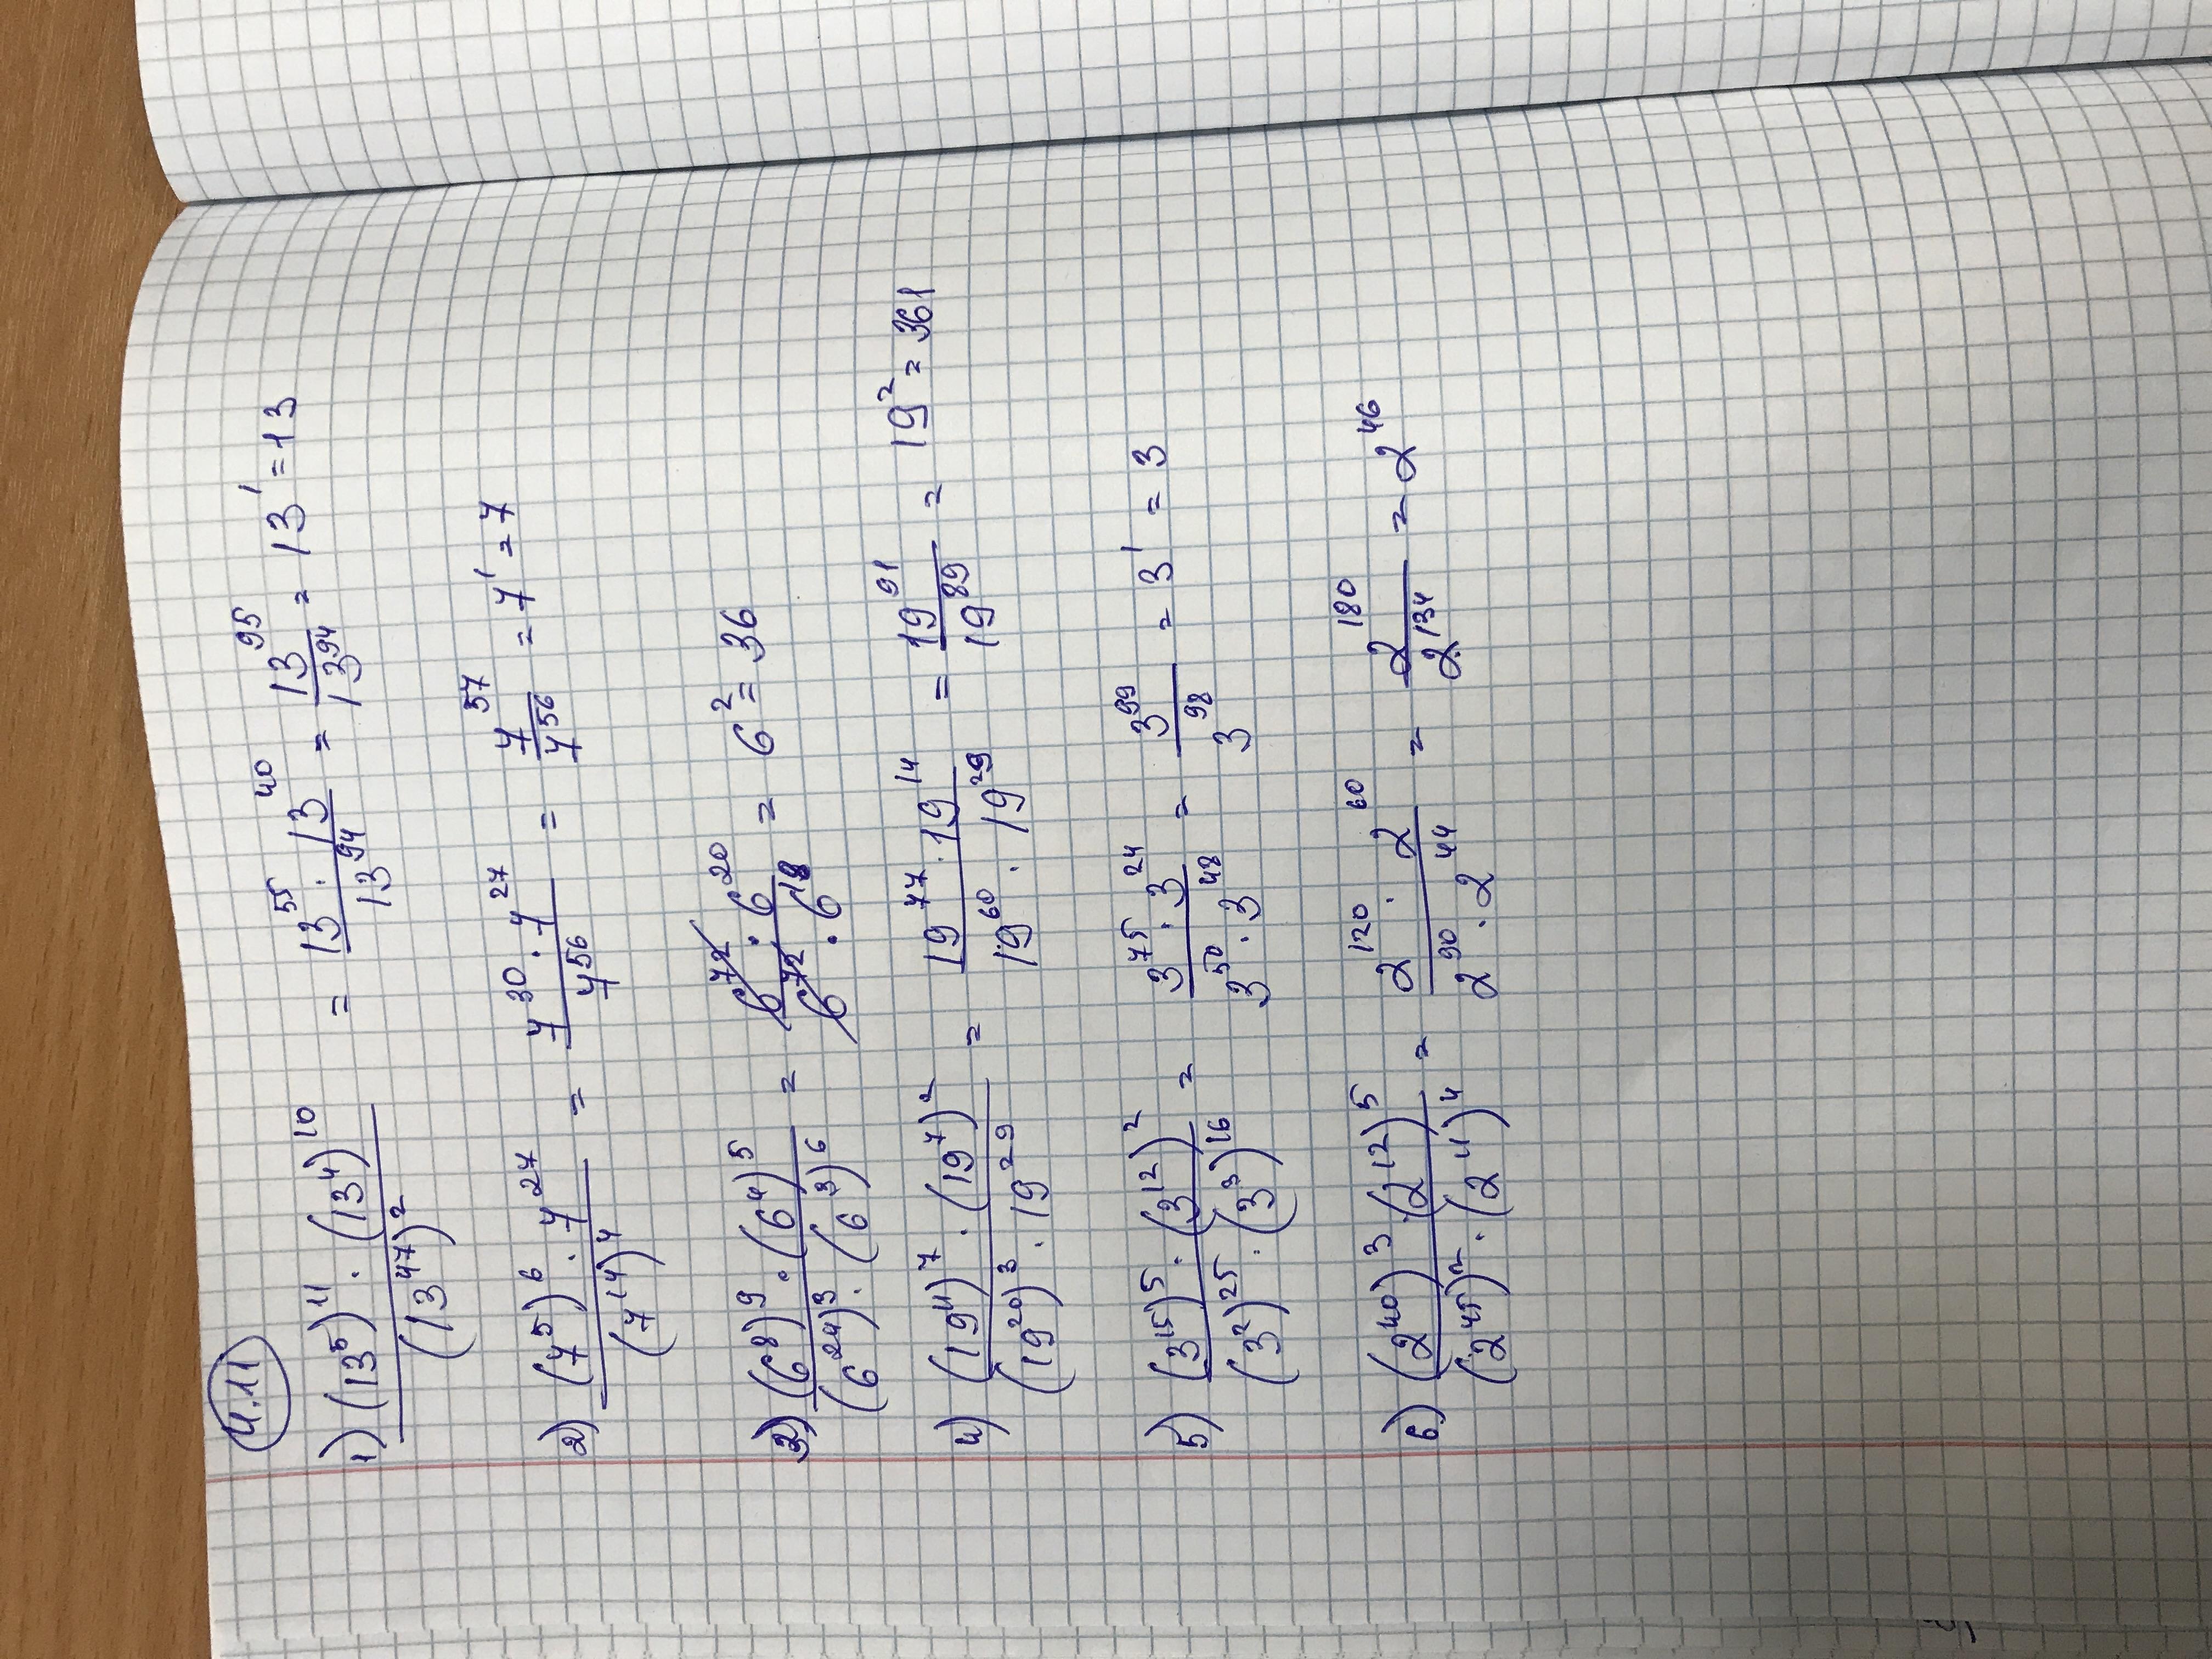 4.11
1) (13⁵)¹¹ · (13⁴)¹⁰ / (13⁴⁷)² = 13⁵⁵ · 13⁴⁰ / 13⁹⁴ = 13⁹⁵ / 13⁹⁴ = 13¹ = 13
2) (7⁵)⁶ · 7²⁷ / (7¹⁴)⁴ = 7³⁰ · 7²⁷ / 7⁵⁶ = 7⁵⁷ / 7⁵⁶ = 7¹ = 7
3) (6⁸)⁹ · (6⁴)⁵ / (6²⁴)³ · (6³)⁶ = 6⁷² · 6²⁰ / 6⁷² · 6¹⁸ = 6² = 36
4) (19¹¹)⁷ · (19⁷)² / (19²⁰)³ · 19²⁹ = 19⁷⁷ · 19¹⁴ / 19⁶⁰ · 19²⁹ = 19⁹¹ / 19⁸⁹ = 19² = 361
5) (3¹⁵)⁵ · (3¹²)² / (3²)²⁵ · (3³)¹⁶ = 3⁷⁵ · 3²⁴ / 3⁵⁰ · 3⁴⁸ = 3⁹⁹ / 3⁹⁸ = 3¹ = 3
6) (2⁴⁰)³ · (2¹²)⁵ / (2⁴⁵)² · (2¹¹)⁴ = 2¹²⁰ · 2⁶⁰ / 2⁹⁰ · 2⁴⁴ = 2¹⁸⁰ / 2¹³⁴ = 2⁴⁶